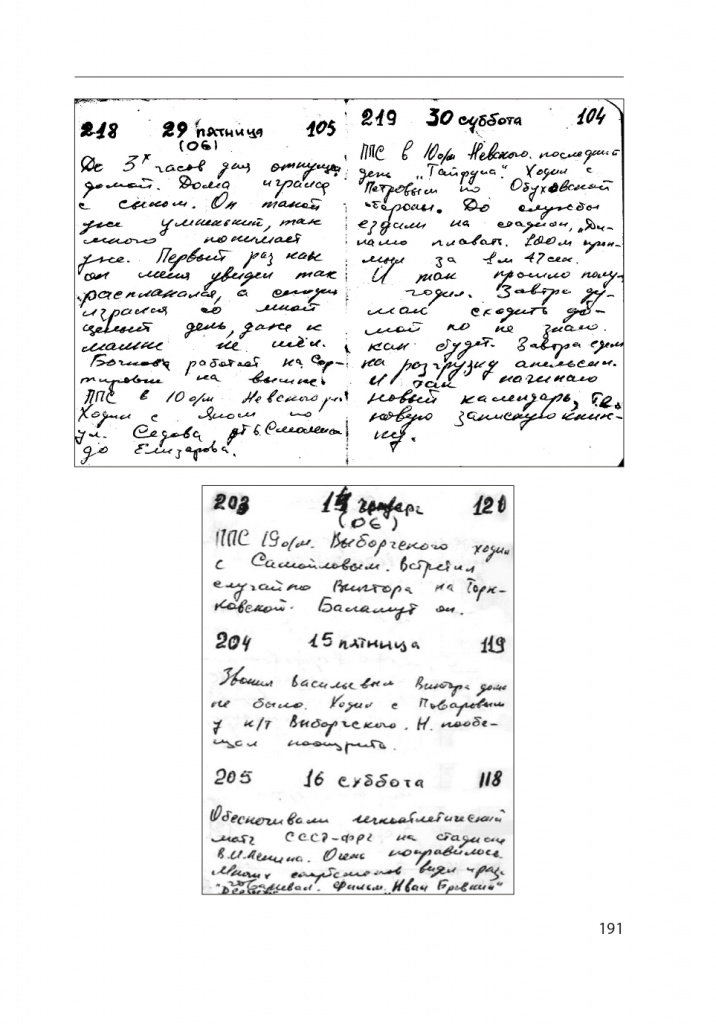 218 29 пятница 105
(06)
До 3х часов дня отпущен
домой. Дома игрался
с сыном. Он такой
уже умненький, так
много понимает
уже. Первый раз как
он меня увидел так
расплакался, а сегодня
игрался со мной
целый день, даже к
мамке не шёл.
Бочкова работает на Сор-
тировке на вышке.
ППС в 10 о/м Невского р/
Ходил с Яном по
ул. Седова от б. Смоленск
до Елизарова.
219 30 суббота 104
ППС в 10 о/м Невского. последний
день "Тайруна". Ходил с
Петровым по Обуховской
обороны. До службы
ездили на стадион "Ди-
намо плавать. 100 м при-
мерно за 1 м 47 сек.
И так прошло полу-
годия. Завтра ду-
маю сходить до-
мой но не знаю.
как будет. Завтра едем
на розгрузку апельсин.
И так начинаю
новый календарь, те.
новую записную книж-
ку.
203 14 четверг 120
(06)
ППС 19 о/м. Выборгского ходил
с Самойловым. Встретил
случайно Виктора на Торж-
ковской. Баламут он.
204 15 пятница 119
Звонил Васильевым Виктора дома
не было. Ходил с Поваровым
у к/т Выборгского. Н. пообе-
щал поощрить.
205 16 суббота 118
Обеспечивали легкоатлетический
матч СССР-ФРГ на стадионе
В.И.Ленина. Очень понравилось.
Многих спортсменов видел и раз-
говаривал. Фильм "Иван Грозный"
191